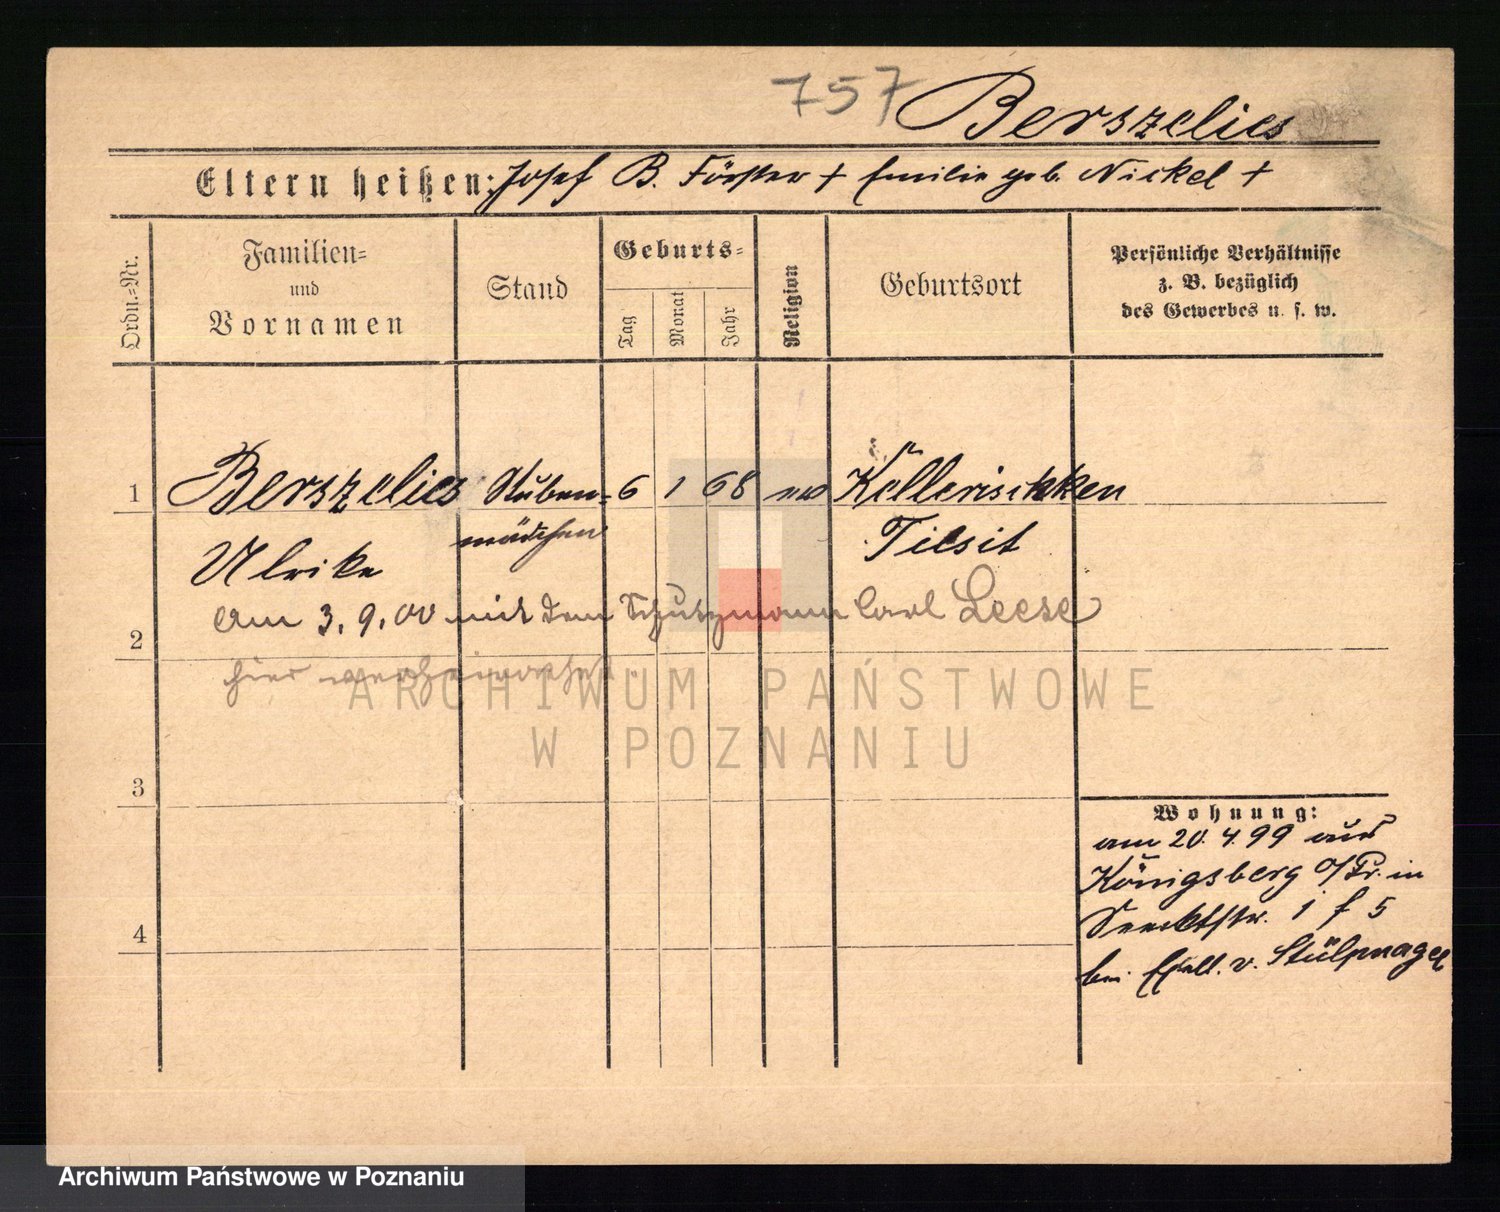 757 Berszelies
Eltern heißen: Josef B. Förster + Emilie geb. Nickel +
Ordn.-Nr.
Familien-
und
Vornamen
Stand
Geburts-
Tag
Monat
Jahr
Religion
Geburtsort
Persönliche Verhältnisse
z. B. bezüglich
des Gewerbes u. s. w.
1 Berszelies Stuben- 6 1 68 ev Kellerischken
mädchen Tilsit
Ulrike
am 3.9.00 mit dem Schutzmann Carl Leese
2
hier verheirathet.
ARCHIWUM PAŃSTWOWE
W POZNANIU
3
Wohnung:
am 20.4.99 aus
Königsberg O/Pr. in
Seecktstr. 1 f 5
4
bei Exell. v. Stülpnagel
Archiwum Państwowe w Poznaniu